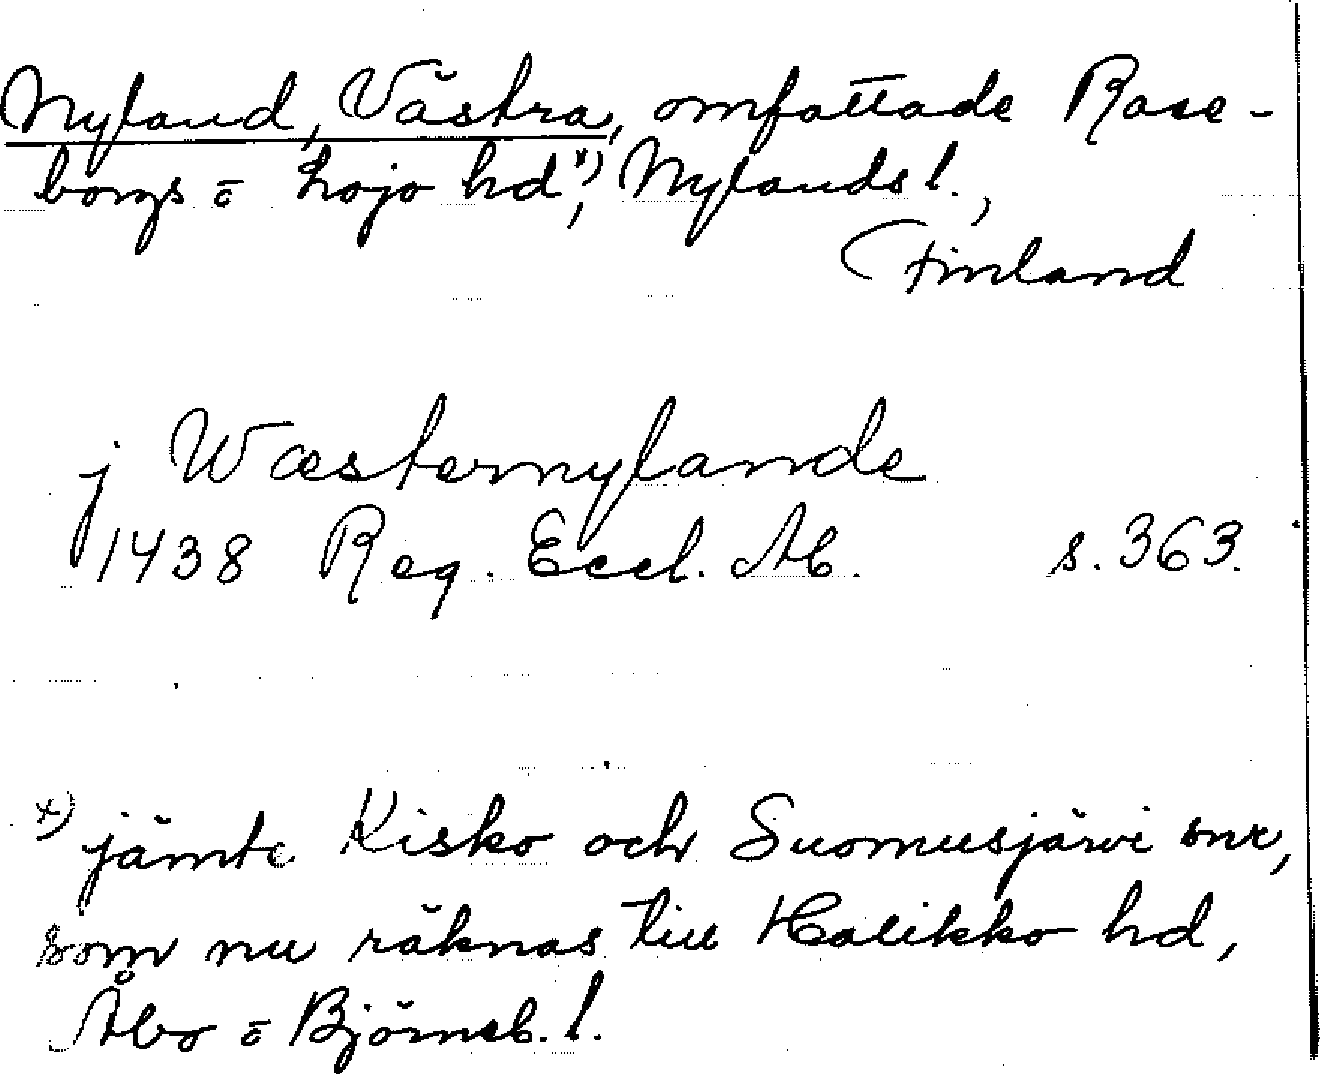 Nyland, Västra, omfattade Rase-
borgs o Lojo hd*), Nylands l.,
Finland
j Wæsternylande
1438 Reg. Eccl. Ab. s. 363.
*) jämte Kisko och Suomusjärvi snr,
som nu räknas till Halikko hd,
Åbo o Björneb. l.